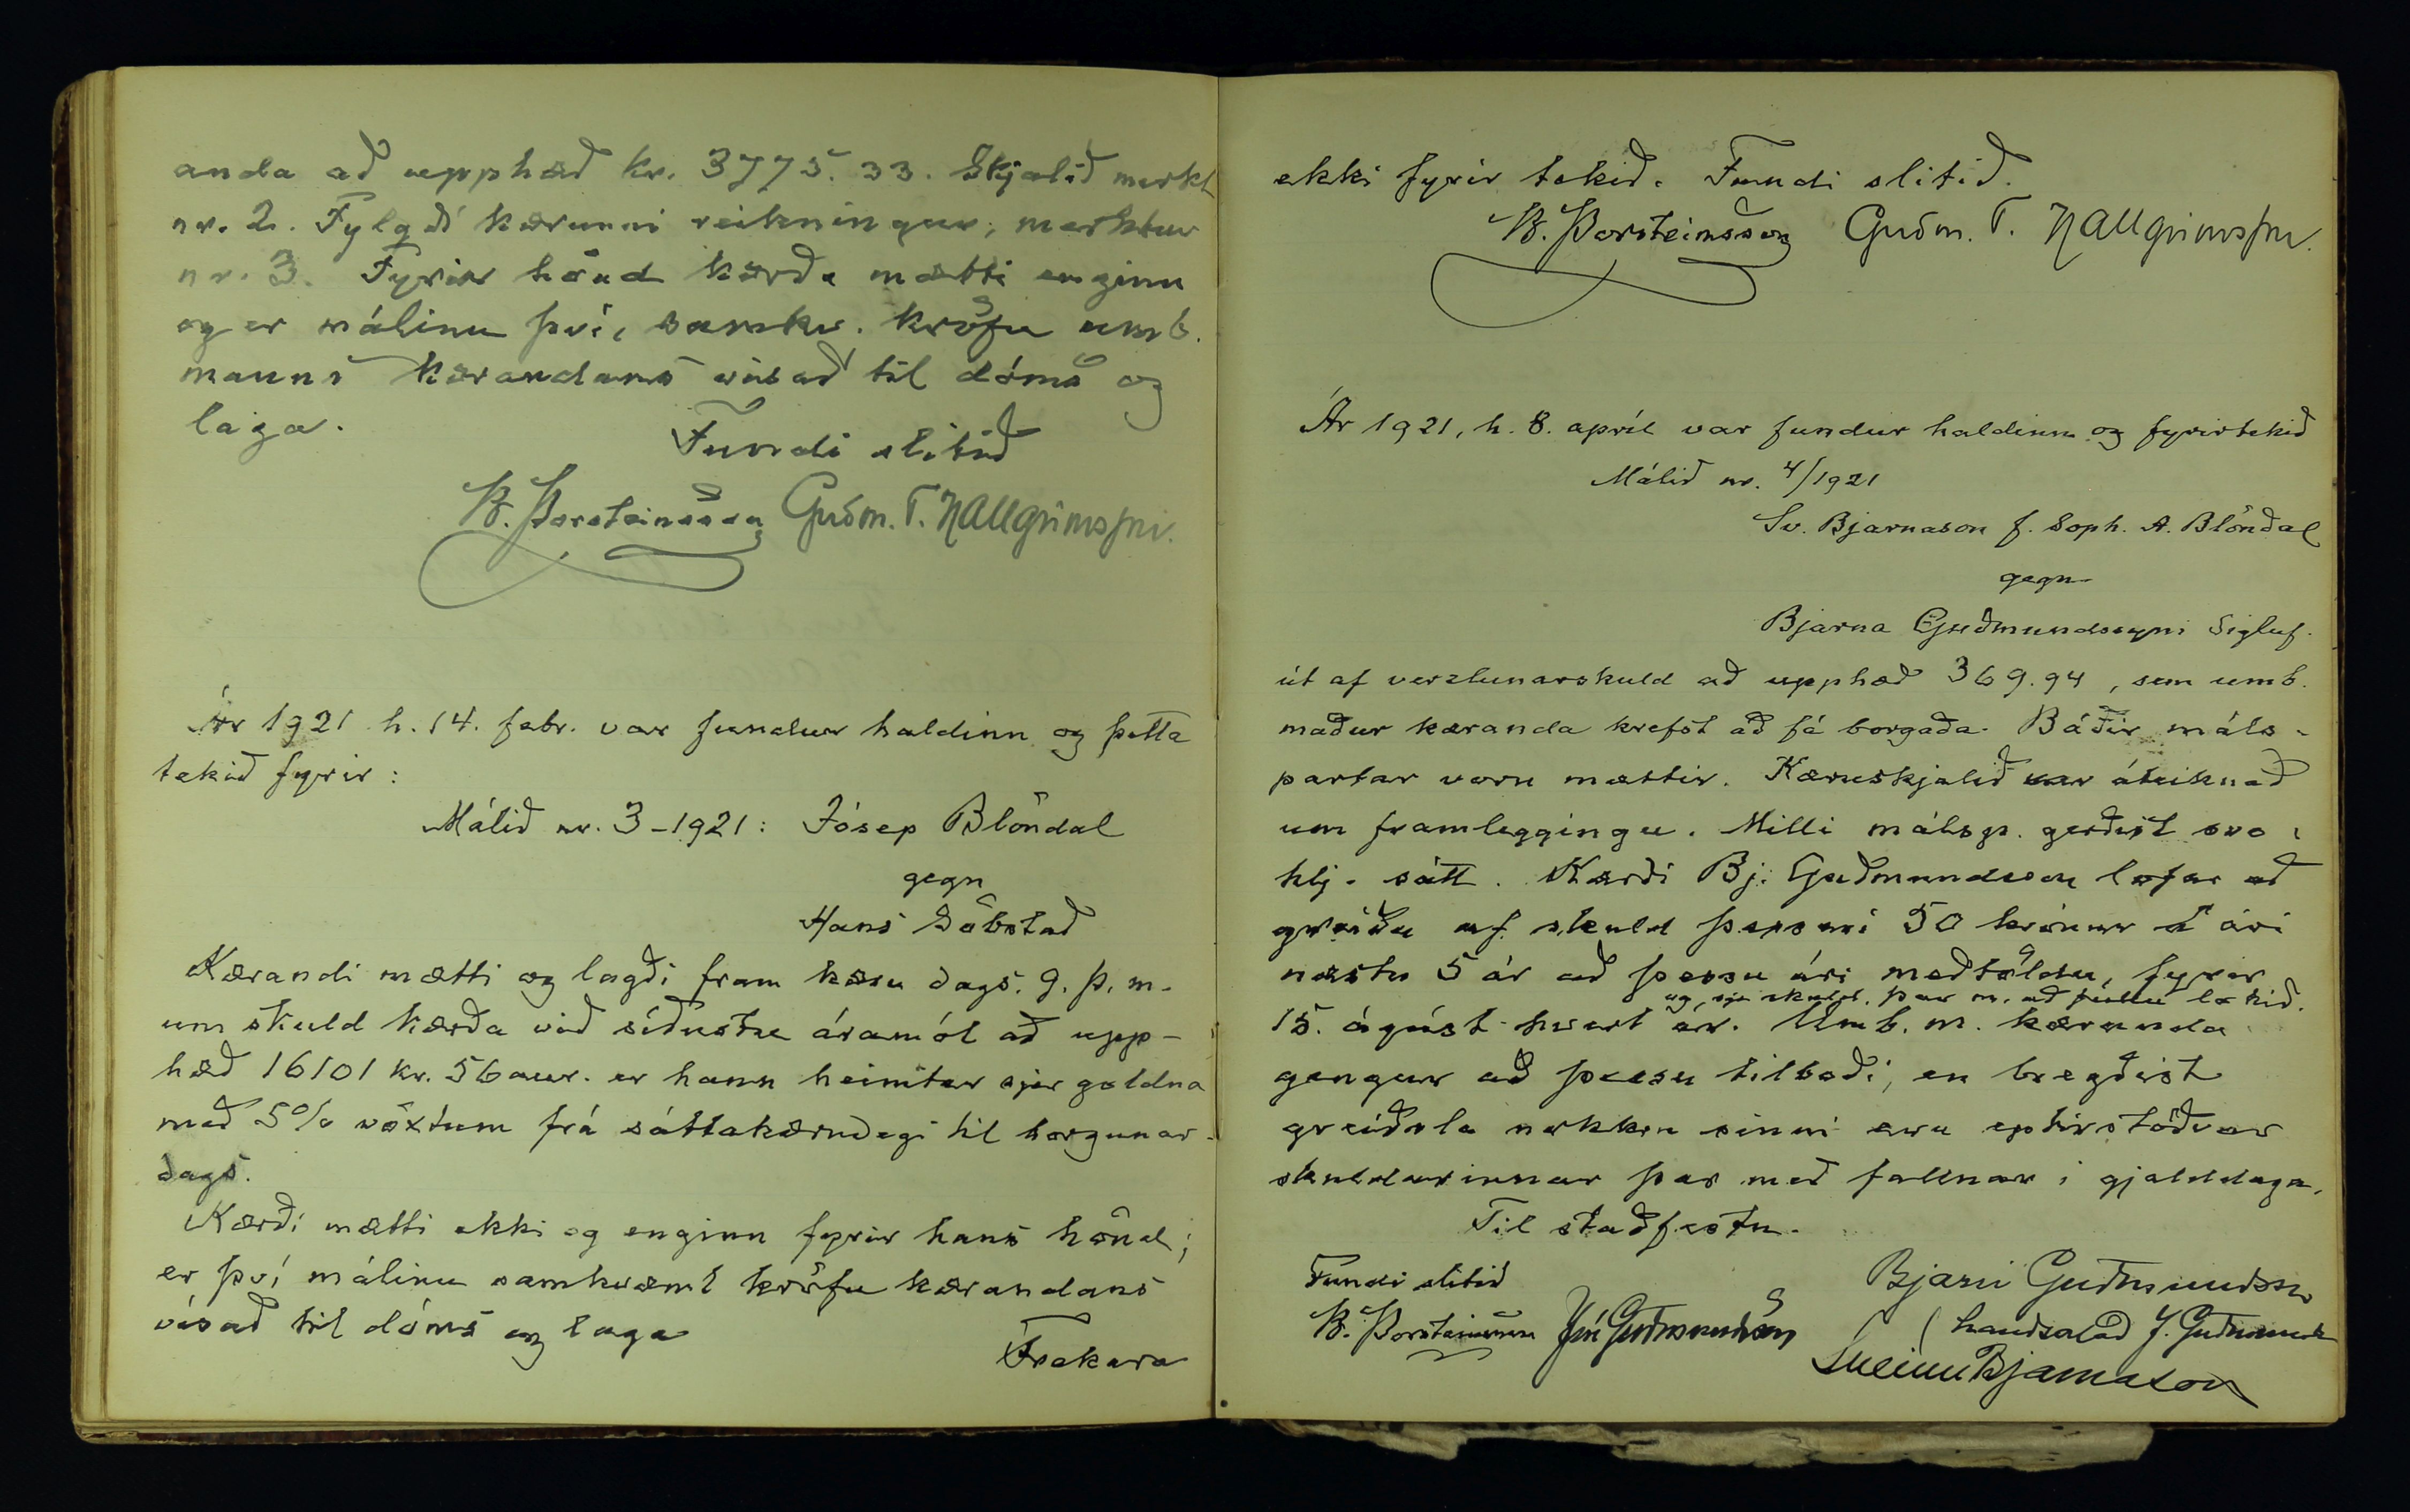 anda að upphæð kr. 3775.33. Skjalið merkt
nr. 2. Fylgdi kærunni reikningur, merktur
nr. 3. Fyrir hönd kærða mætti enginn
og er málinu því, samkv. kröfu umb.
manns kærandans vísað til dóms og
laga.
Fundi slitið
B. Þorsteinsson Guðm. T. Hallgrímsson.
Ár 1921 h. 14. febr. var fundur haldinn og þetta
tekið fyrir:
Málið nr. 3-1921: Jósep Blöndal
gegn
Hans Söbstað
Kærandi mætti og lagði fram kæru dags. 9. þ. m.
um skuld kærða við síðustu áramót að upp-
hæð 16101 kr. 56 aur. er hann heimtar sjer goldna
með 5% vöxtum frá sáttakærudegi til borgunar-
dags.
Kærði mætti ekki og enginn fyrir hans hönd;
er því málinu samkvæmt kröfu kærandans
vísað til dóms og laga
Frekara
ekki fyrir tekið. Fundi slitið.
B. Þorsteinsson Guðm. T. Hallgrímsson.
Ár 1921, h. 8. apríl var fundur haldinn og fyrirtekið
Málið nr. 4/1921
Sv. Bjarnason f. Soph. A. Blöndal
gegn
Bjarna Guðmundssyni Sigluf.
út af verzlunarskuld að upphæð 369.94, sem umb.
maður kæranda krefst að fá borgaða. Báðir máls-
partar voru mættir. Kæruskjalið var áteiknað
um framleggingu. Milli málsp. gerðist svo
hlj. sátt. Kærði Bj. Guðmundsson lofar að
greiða af skuld þessari 50 krónur á ári
næstu 5 ár að þessu ári meðtöldu, fyrir
og sje skuld. þar m. að fullu lokið.
15. ágúst hvert ár. Umb. m. kæranda
gengur að þessu tilboði, en bregðist
greiðsla nokkru sinni eru eptirstöðvar
skuldarinnar þar með fallnar í gjalddaga.
Til staðfestu.
Fundi slitið Bjarni Guðmundsson
B. Þorsteinsson Jón Guðmundsson (handsalað J. Guðmunds
Sveinn Bjarnason